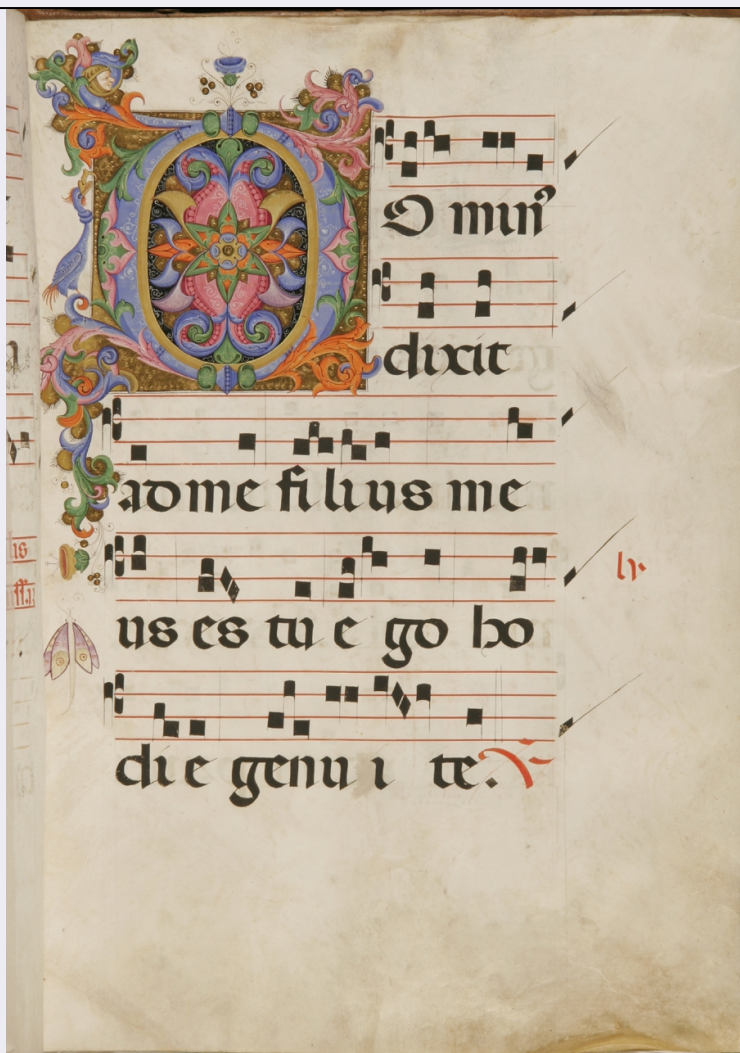 DOminꝰ
dixit
ad me filius me
us es tu e go ho
di e genu i te. ℣